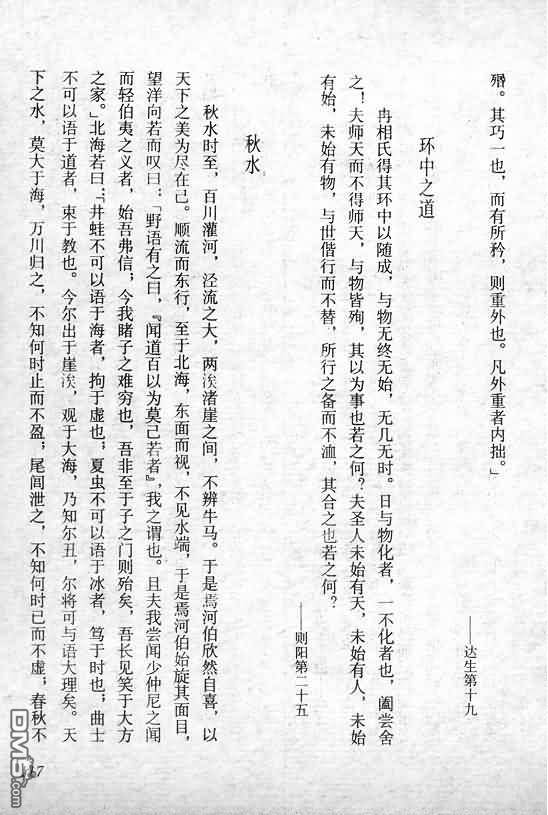 殙。其巧一也，而有所矜，则重外也。凡外重者内拙。」
——达生第十九
环中之道
冉相氏得其环中以随成，与物无终无始，无几无时。日与物化者，一不化者也，阖尝舍
之！夫师天而不得师天，与物皆殉，其以为事也若之何？夫圣人未始有天，未始有人，未始
有始，未始有物，与世偕行而不替，所行之备而不洫，其合之也若之何？
——则阳第二十五
秋水
秋水时至，百川灌河，泾流之大，两涘渚崖之间，不辨牛马。于是焉河伯欣然自喜，以
天下之美为尽在己。顺流而东行，至于北海，东面而视，不见水端，于是焉河伯始旋其面目，
望洋向若而叹曰：「野语有之曰，『闻道百以为莫己若者』，我之谓也。且夫我尝闻少仲尼之闻
而轻伯夷之义者，始吾弗信；今我睹子之难穷也，吾非至于子之门则殆矣，吾长见笑于大方
之家。」北海若曰：「井蛙不可以语于海者，拘于虚也；夏虫不可以语于冰者，笃于时也；曲士
不可以语于道者，束于教也。今尔出于崖涘，观于大海，乃知尔丑，尔将可与语大理矣。天
下之水，莫大于海，万川归之，不知何时止而不盈；尾闾泄之，不知何时已而不虚；春秋不
DM5.com